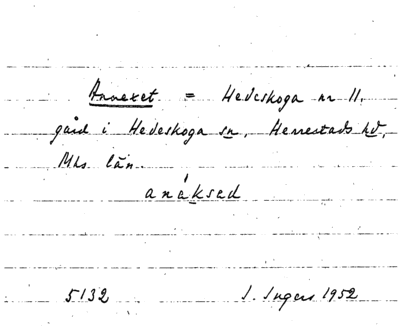 Annexet = Hedeskoga nr 11.
gård i Hedeskoga sn, Herrestads hd,
Mhs län.
anáksed
5132 I. Ingers 1952